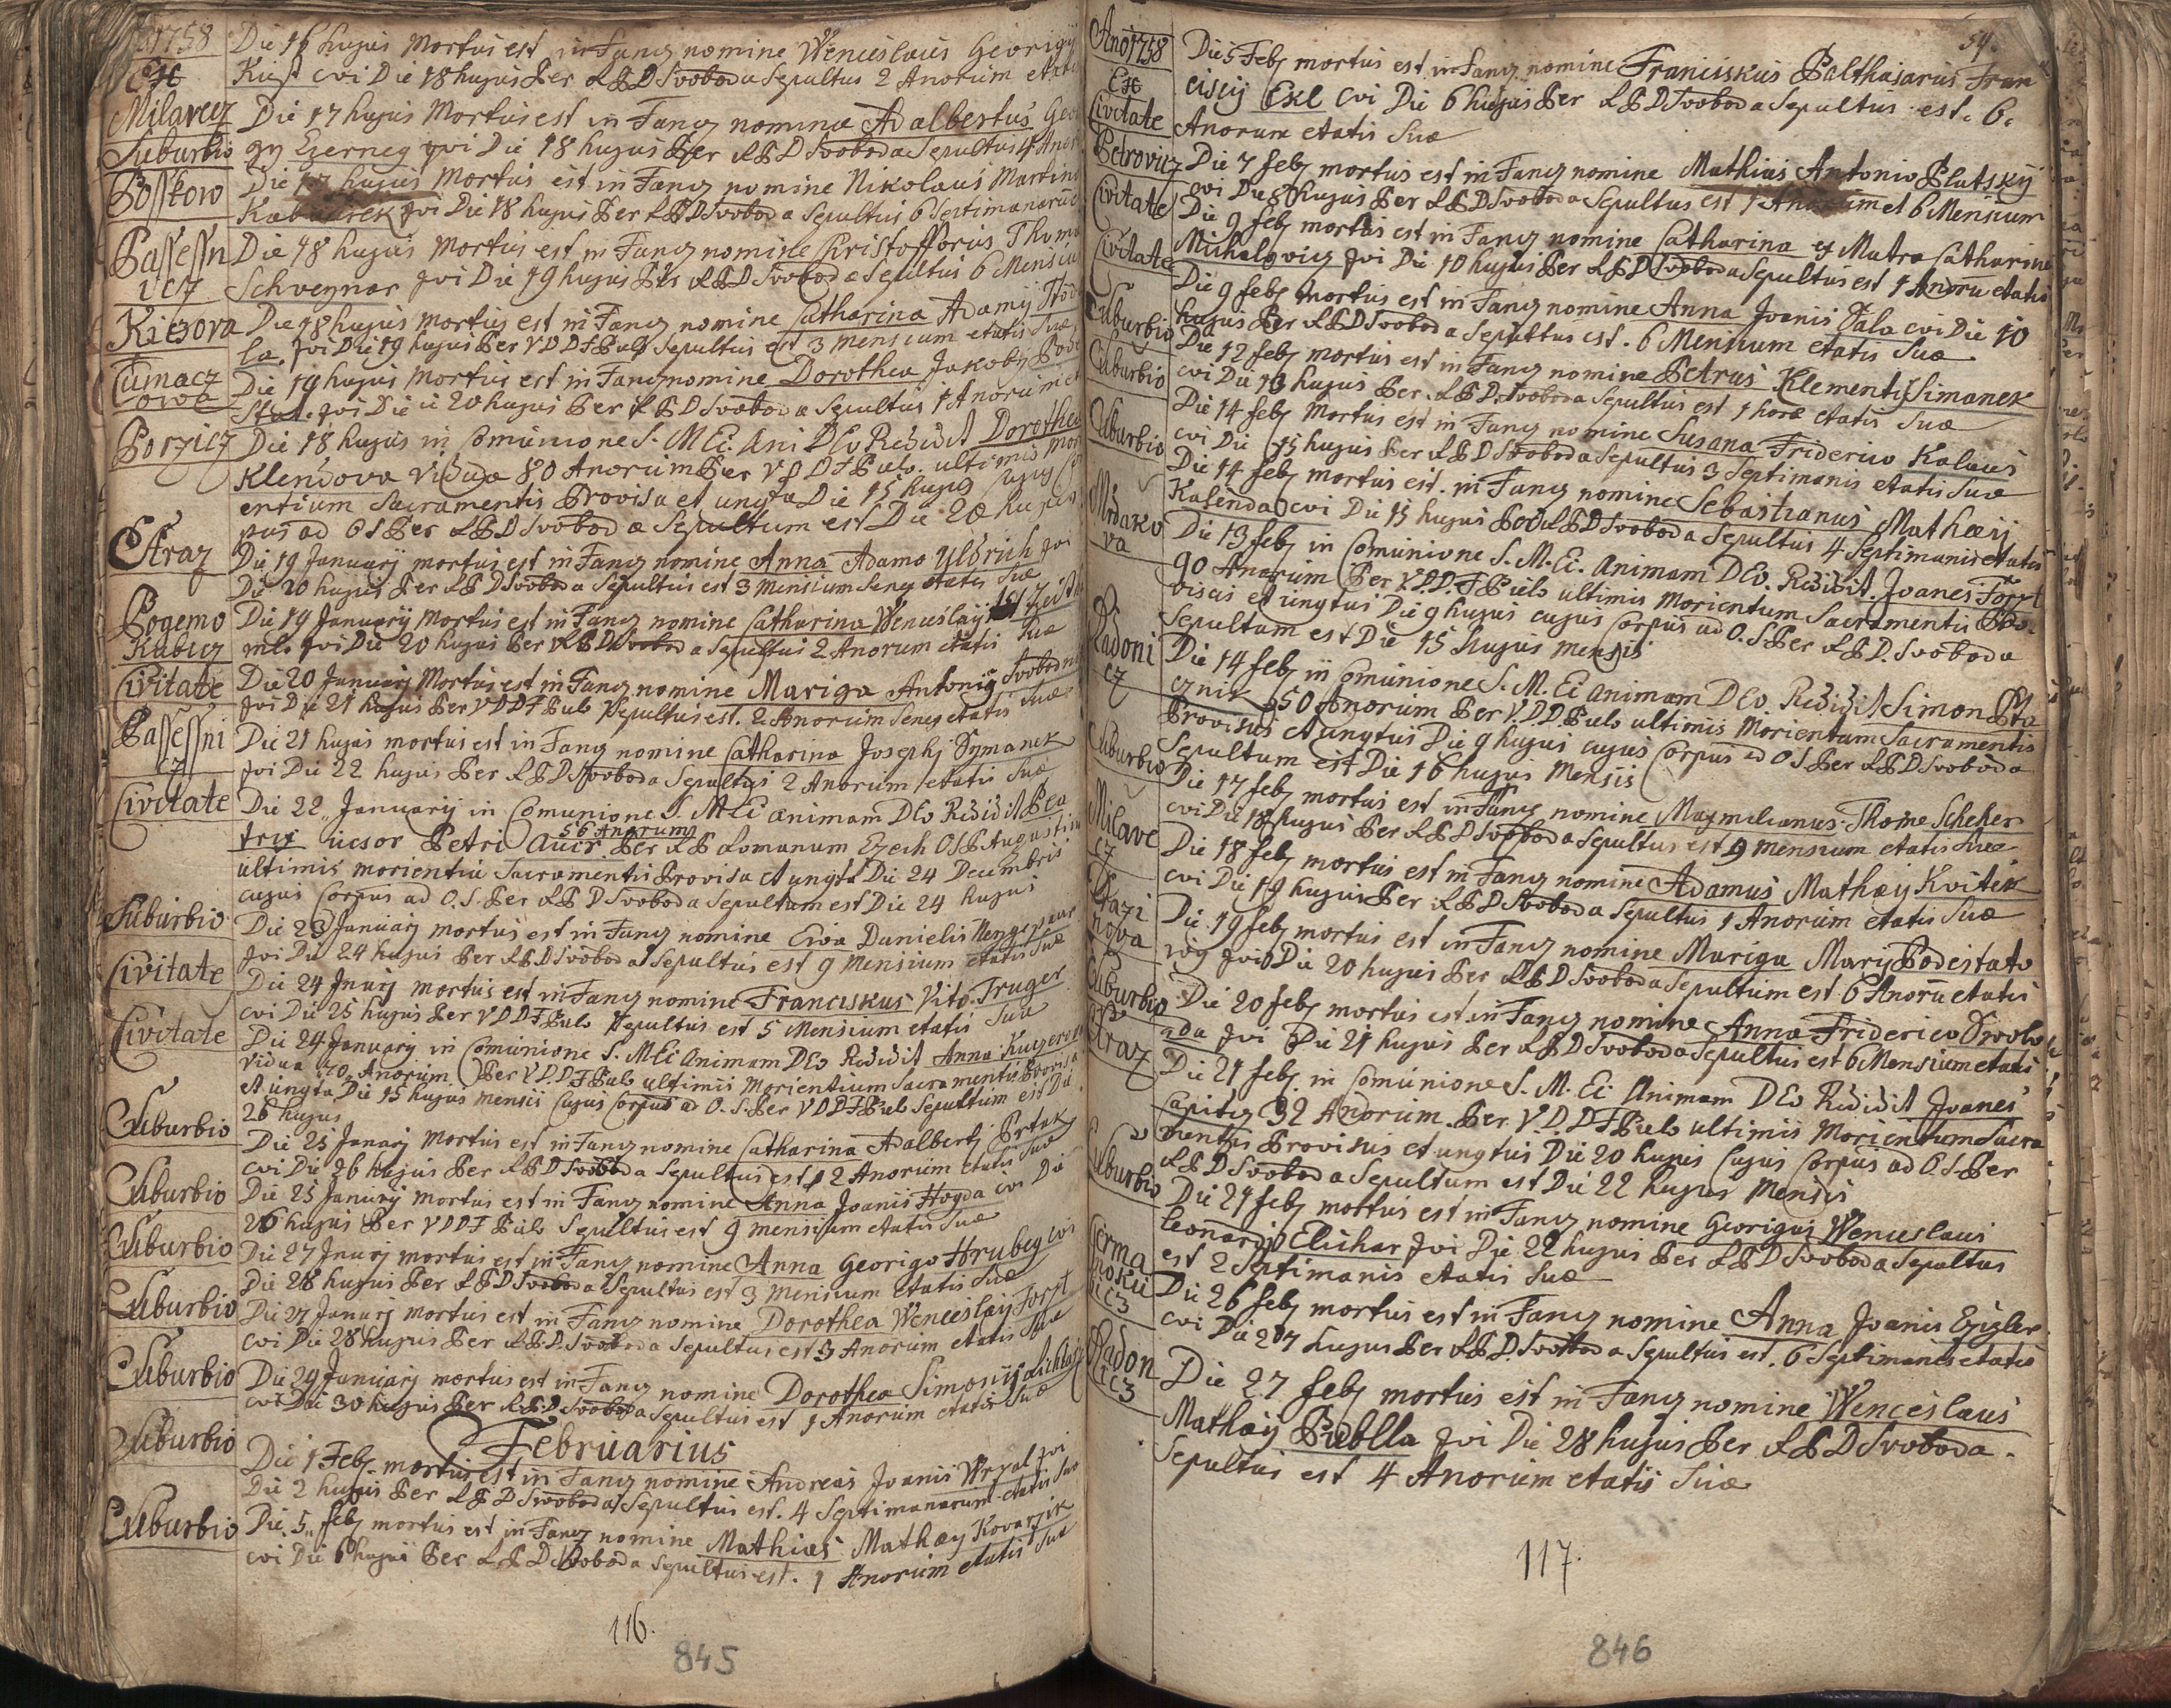 1758
Ex
Die 16 hujus Mortus est in Fang nomine Wenceslaus Georigy
cvi Die 18 hujus Per A.P.D Svoboda Sepultus 2 Anorum etatis
Milavcz
Die 17 hujus Mortus est in Fang nomine Adalbertus Geo
Suburbio
gy Czerney qvi Die 18 hujus Per A.P.D Svoboda Sepultus 4 Anor
Bosskow
Die 17 hujus Mortus est in Fang nomine Nikolaus Martino
qvi Die 18 hujus Per A.P.D Svoboda Sepultus 6 Septimanarum
Passessn
icz
Die 18 hujus Mortus est in Fang nomine Christofforus Thoma
Schveynar qvi Die 19 hujus Per A.P.D Svoboda Sepultus 6 Mensiu
Kiczova
Die 18 hujus Mortus est in Fang nomine Catharina Adamy Hod
la. qvi Die 19 hujus Per V.D.D.F Puls Sepultus est 3 Mensium etatis Suæ
Cumacz
owa
Die 19 hujus Mortus est in Fang nomine Dorothea Jakoby Pode
Stat. qvi Die 20 hujus Per A.P.D Svoboda Sepultus 1 Anorum et
Porzicz
Die 18 hujus in Comunione S. M. Ei. Ani DEo Redidit Dorothea
Klendova Vidua 80 Anorum Per V.D.D.F Puls. ultimis mori
entium Sacramentis Provisa et ungta Die 15 hujus Cujus Cor
pus ad O S Per A.P.D Svoboda Sepultum est Die 20 hujus
Straz
Die 19 Januarij mortus est in Fang nomine Anna Adamo Uldrich qvi
Die 20 hujus Per A.P.D Svoboda Sepultus est 3 Mensium Seney etatis Suæ
Pogemo
Kubicz
Die 19 Januarij Mortus est in Fang nomine Catharina Wenceslay
mlo qvi Die 20 hujus Per A.P.D Svoboda Sepultus 2 Anorum etatis Suæ
Civitate
Die 20 Januarij Mortus est in Fang nomine Mariga Antonij Svobodni
qvi Die 21 hujus Per V.D.D.F Puls Sepultus est. 2 Anorum Seney etatis Suæ
Passessni
cz
Die 21 hujus mortus est in Fang nomine Catharina Josephj Symanek
qvi Die 22 hujus Per A.P.D Svoboda Sepultus 2 Anorum etatis Suæ
Civitate
Die 22 Januarij in Comunione S. M Ei animam DEo Redidit Bea
56 Anorum
trix ucsor Petri Auer Per A.P Lomanum Czech O S P Augustin
ultimis morientiu Sacramentis Provisa et ungta Die 24 Decembris
cujus Corpus ad O.S. Per A.P.D Svoboda Sepultum est Die 24 hujus
Suburbio
Die 23 Januarij mortus est in Fang nomine Eva Danielis
qvi Die 24 hujus Per A.P.D Svoboda Sepultus est 9 Mensium etatis Suæ
Civitate
Die 24 Jnuarj mortus est in Fang nomine Franciskus Vito. Truger
cvi Die 25 hujus Per V.D.D.F Puls Sepultus est 5 Mensium etatis Suæ
Civitate
Die 24 Januarij in Comunione S. M Ei Animam DEo Redidit Anna
Vidua 70 Anorum Per V.D.D.F Puls ultimis Morientium Sacramentis Provisa
et ungta Die 15 hujus mensis Cujus Corpus ad O. S. Per V.D.D.F Puls Sepultum est Die
26 hujus
Suburbio
Die 25 Januarj Mortus est in Fang nomine Catharina Adalbertj Prtak
cvi Die 26 hujus Per A.P.D Svoboda Sepultus est 2 Anorum etatis Suæ
Suburbio
Die 25 Januarij Mortus est in Fang nomine Anna Joanis Hogda cvi Die
26 hujus Per V.D.D.F Puls Sepultus est 9 mensium etatis Suæ
Suburbio
Die 27 Jnuarj mortus est in Fang nomine Anna Georigo Hrubey cvi
Die 28 hujus Per A.P.D Svoboda Sepultus est 3 Mensium etatis Suæ
Suburbio
Die 27 Januarj mortus est in Fang nomine Dorothea Wenceslay Forst
cvi Die 28 hujus Per A.P.D. Svoboda Sepultus est 3 Anorum etatis Suæ
Suburbio
Die 29 Januarj mortus est in Fang nomine Dorothea Simonis
cvi Die 30 hujus Per A.P.D. Svoboda Sepultus est 1 Anorum etatis Suæ
Februarius
Suburbio
Die 1 Febj mortus est in Fang nomine Andreas Joanis Wrzal qvi
Die 2 hujus Per A.P.D Svoboda Sepultus est. 4 Septimanarum etatis Suæ
Suburbio
Die. 5 febj mortus est in Fang nomine Mathias Mathæy Kovarzik
cvi Die 6 hujus Per A.P.D Svoboda Sepultus est. 1 Anorum etatis Suæ
116.
845
54.
Ano 1758
Ex
Civitate
Die 5 Febj mortus est in Fang nomine Franciskus Balthasarus Fran
ciscij Exl cvi Die 6 hujus Per A.P.D Svoboda Sepultus est. 6.
Anorum etatis Suæ
Petrovicz
Die 7 febj mortus est in Fang nomine Mathias Antonio Plutsky
cvi Die 8 hujus Per A.P.D Svoboda Sepultus est 1 Anorum et 6 Mensium
Civitate
Die 9 febj mortus est in Fang nomine Catharina ex Matre Catharine
qvi Die 10 hujus Per A.P.D Svoboda Sepultus est 1 Anoru etatis
Civitate
Die 9 febj mortus est in Fang nomine Anna Joanis Jala cvi Die 10
hujus Per A.P.D Svoboda Sepultus est. 6 Mensium etatis Suæ
Suburbio
Die 12 febj mortus est in Fang nomine Petrus Klementis Simanek
cvi Die 13 hujus Per A.P.D. Svoboda Sepultus est 1 horæ etatis Suæ
Suburbio
Die 14 febj Mortus est in Fang nomine Susana Friderico Kalaus
cvi Die 15 hujus Per A.P.D Svoboda Sepultus 3 Septimanis etatis Suæ
Suburbio
Die 14 febj mortus est. in Fang nomine Sebastianus Mathæij
Kalenda cvi Die 15 hujus Per A.P.D Svoboda Sepultus 4 Septimanis etatis
Mrdako
va
Die 13 febj in Comunione S. M. Ei. Animam DEo. Redidit. Joanes Forst
90 Anorum Per V.D.D.F Puls ultimis Morientum Sacramentis Pro.
visus et ungtus Die 9 hujus cujus Corpus ad O. S Per A.P.D. Svoboda
Sepultum est Die 15 hujus mensis
Radoni
cz
Die 14 febj in Comunione S. M. Ei animam DEo. Redidit Simon Pta
cznik 50 Anorum Per V.D.D. Puls ultimis Morientum Sacramentis
Provisus et ungtus Die 9 hujus cujus Corpus ad O S Per A.P.D Svoboda
Sepultum est Die 16 hujus Mensis
Suburbio
Die 17 febj mortus est in Fang nomine Maxmilianus Thome Scheher
cvi Die 18 hujus Per A.P.D Svoboda Sepultus est 9 mensium etatis Suæ
Milave
cz
Die 18 febj mortus est in Fang nomine Adamus Mathæy Kvitek
cvi Die 19 hujus Per A.P.D Svoboda Sepultus 1 Anorum etatis Suæ
Stazi
nova
Die 19 febj mortus est in Fang nomine Mariga Marij Podestato
vig qvi Die 20 hujus Per A.P.D Svoboda Sepultum est 6 Anoru etatis
Suburbio
Die 20 febj mortus est in Fang nomine Anna Friderico Swobo
ada qvi Die 21 hujus Per A.P.D Svoboda Sepultus est 6 Mensium etatis
Straz
Die 21 febj in Comunione S. M. Ei Animam DEo Redidit Joanes
32 Anorum. Per V.D.D F Puls ultimis Morientum Sacra
mentus Provisus et ungtus Die 20 hujus Cujus Corpus ad O. S. Per
A.P.D Svoboda Sepultum est Die 22 hujus Mensis
Suburbio
Die 21 febj mortus est in Fang nomine Georigus Wenceslaus
Leonardo Elichar qvi Die 22 hujus Per A.P.D Svoboda Sepultus
est 2 Septimanis etatis Suæ
Die 26 febj mortus est in Fang nomine Anna Joanis Czizler
cvi Die 27 hujus Per A.P.D. Svoboda Sepultus est. 6 Septimanis etatis
Radon
icz
Die 27 febj mortus est in Fang nomine Wenceslaus
Mathæij Publla qvi Die 28 hujus Per A.P.D Svoboda.
Sepultus est 4 Anorum etatis Suæ
117.
846